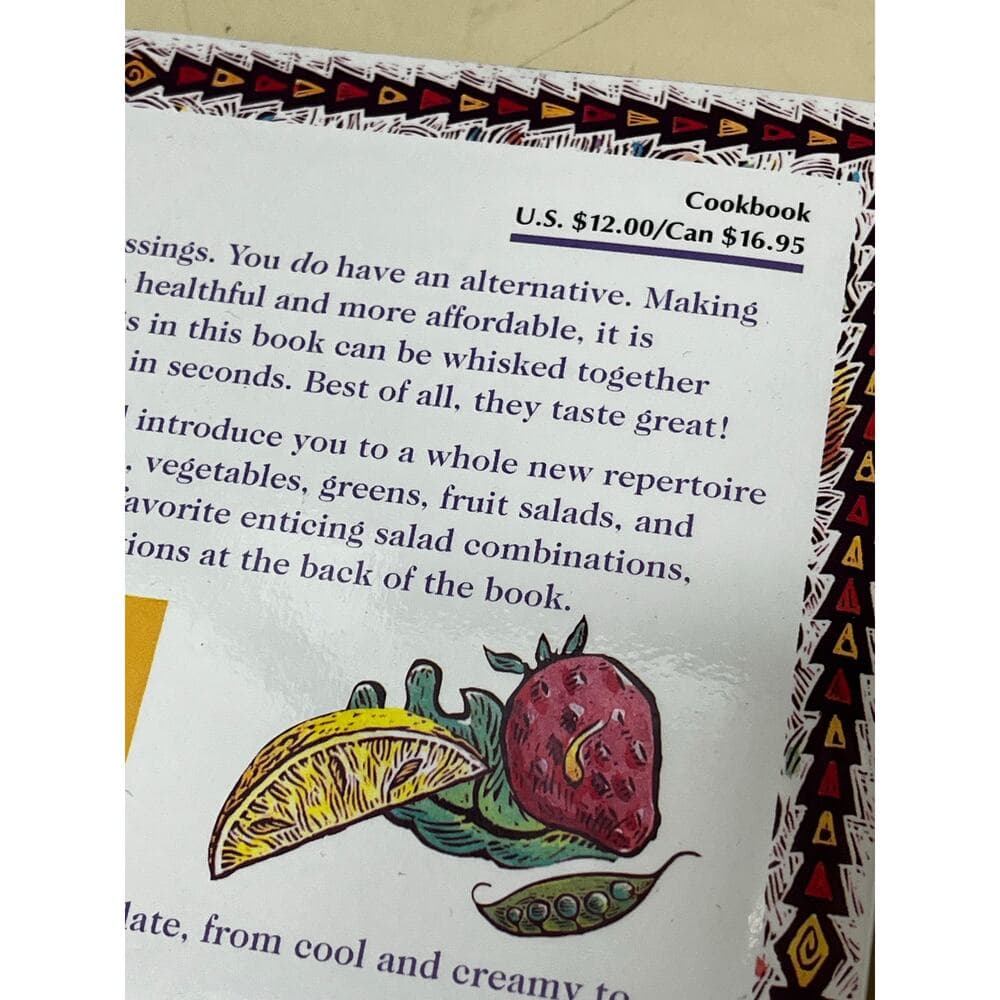 Cookbook
U.S. $12.00/Can $16.95
ssings. You do have an alternative. Making
healthful and more affordable, it is
s in this book can be whisked together
in seconds. Best of all, they taste great!
introduce you to a whole new repertoire
, vegetables, greens, fruit salads, and
avorite enticing salad combinations,
ions at the back of the book.
late, from cool and creamy to